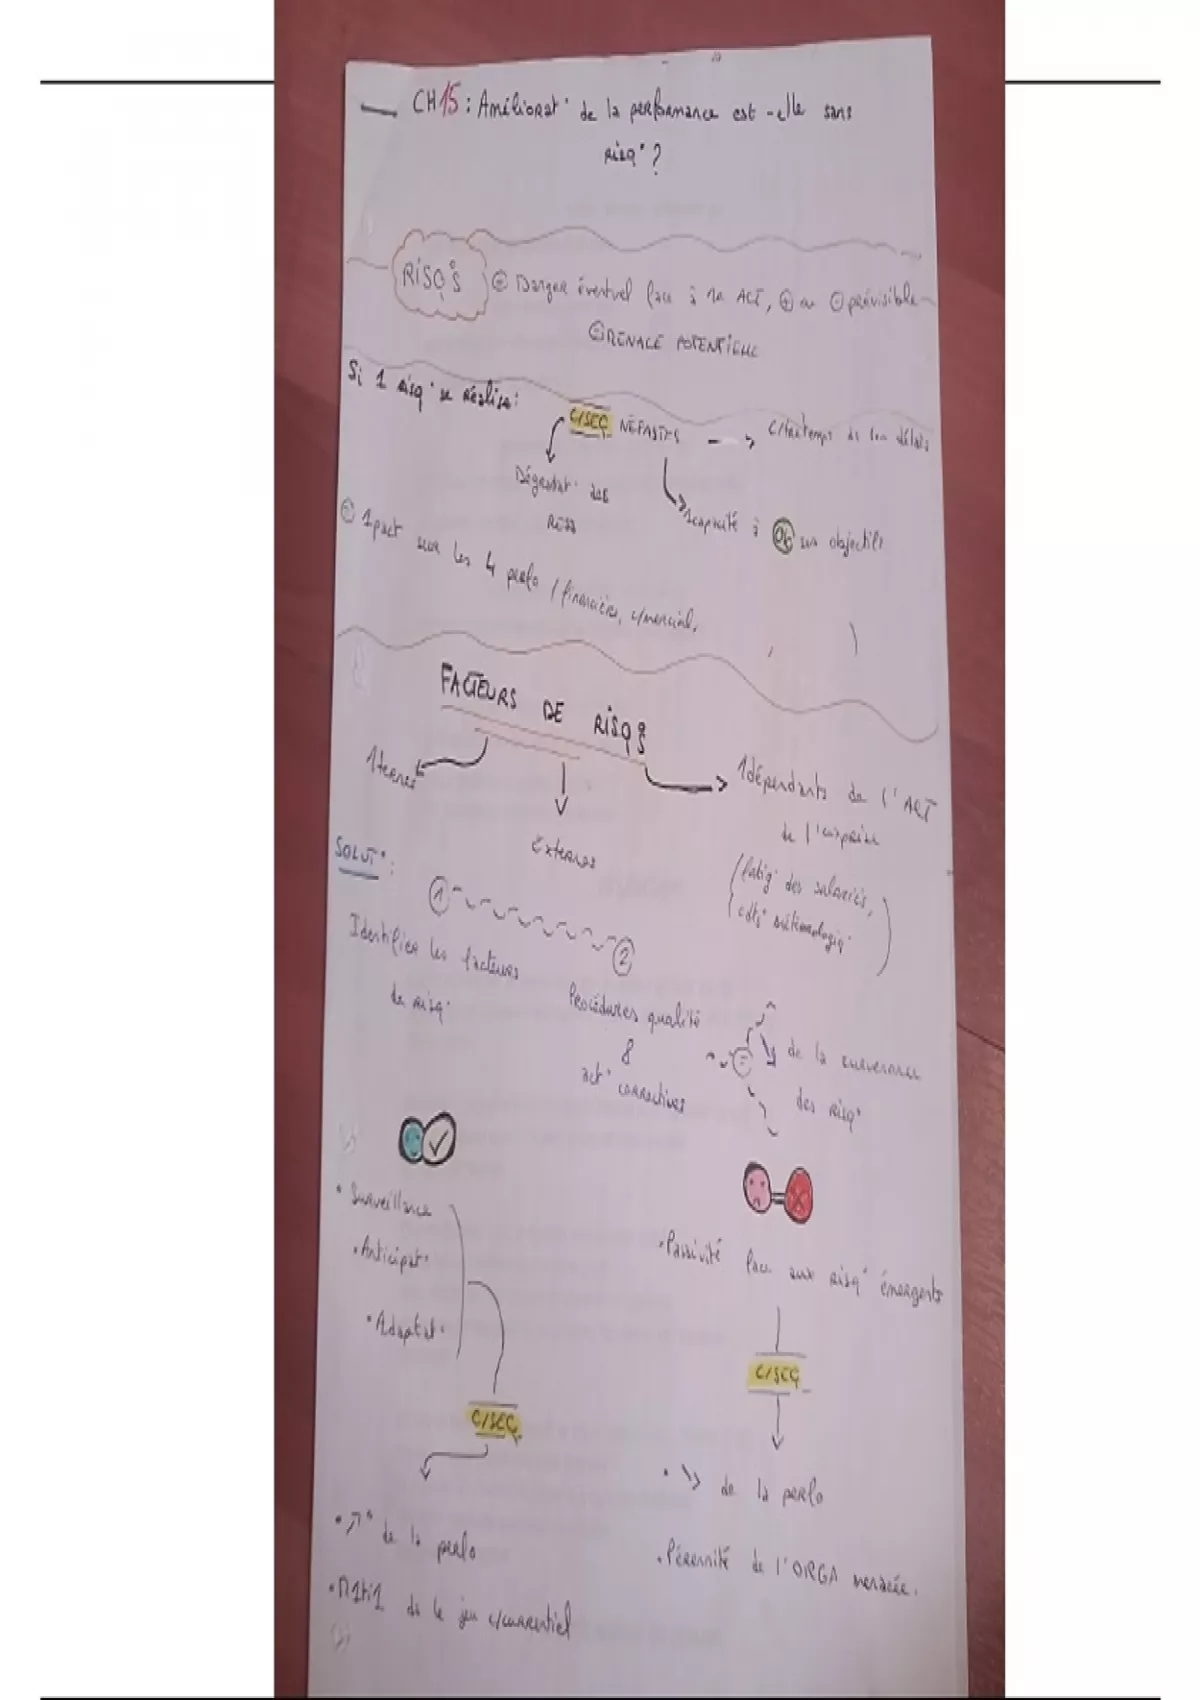 CH15 : Améliorat° de la performance est-elle sans
risq° ?
RISQ°S
⊖ Danger éventuel face à 1 ACT, ⊕ ou ⊖ prévisible
⊖ MENACE POTENTIELLE
Si 1 risq° se réalise :
C/SEQ NÉFASTES → C/tretemps ds les délais
Dégradat° des
Ress
1capacité à Ob ses objectifs
⊖ 1pact sur les 4 perfo (financière, c/mercial,
, )
FACTEURS DE RISQ°S
1ternes
Externes
1dépendants de l'ACT
de l'entreprise
(fatig° des salariés,
cdt° météorologiq°)
SOLUT° :
1 2
Identifier les facteurs
de risq°
Procédures qualité
&
act° correctives
↘ de la survenance
des risq°
• Surveillance
• Anticipat°
• Adaptat°
C/SEQ
• ↗° de la perfo
• M1ti1 ds le jeu c/currentiel
• Passivité face aux risq° émergents
C/SEQ
• ↘ de la perfo
• Pérennité de l'ORGA menacée.